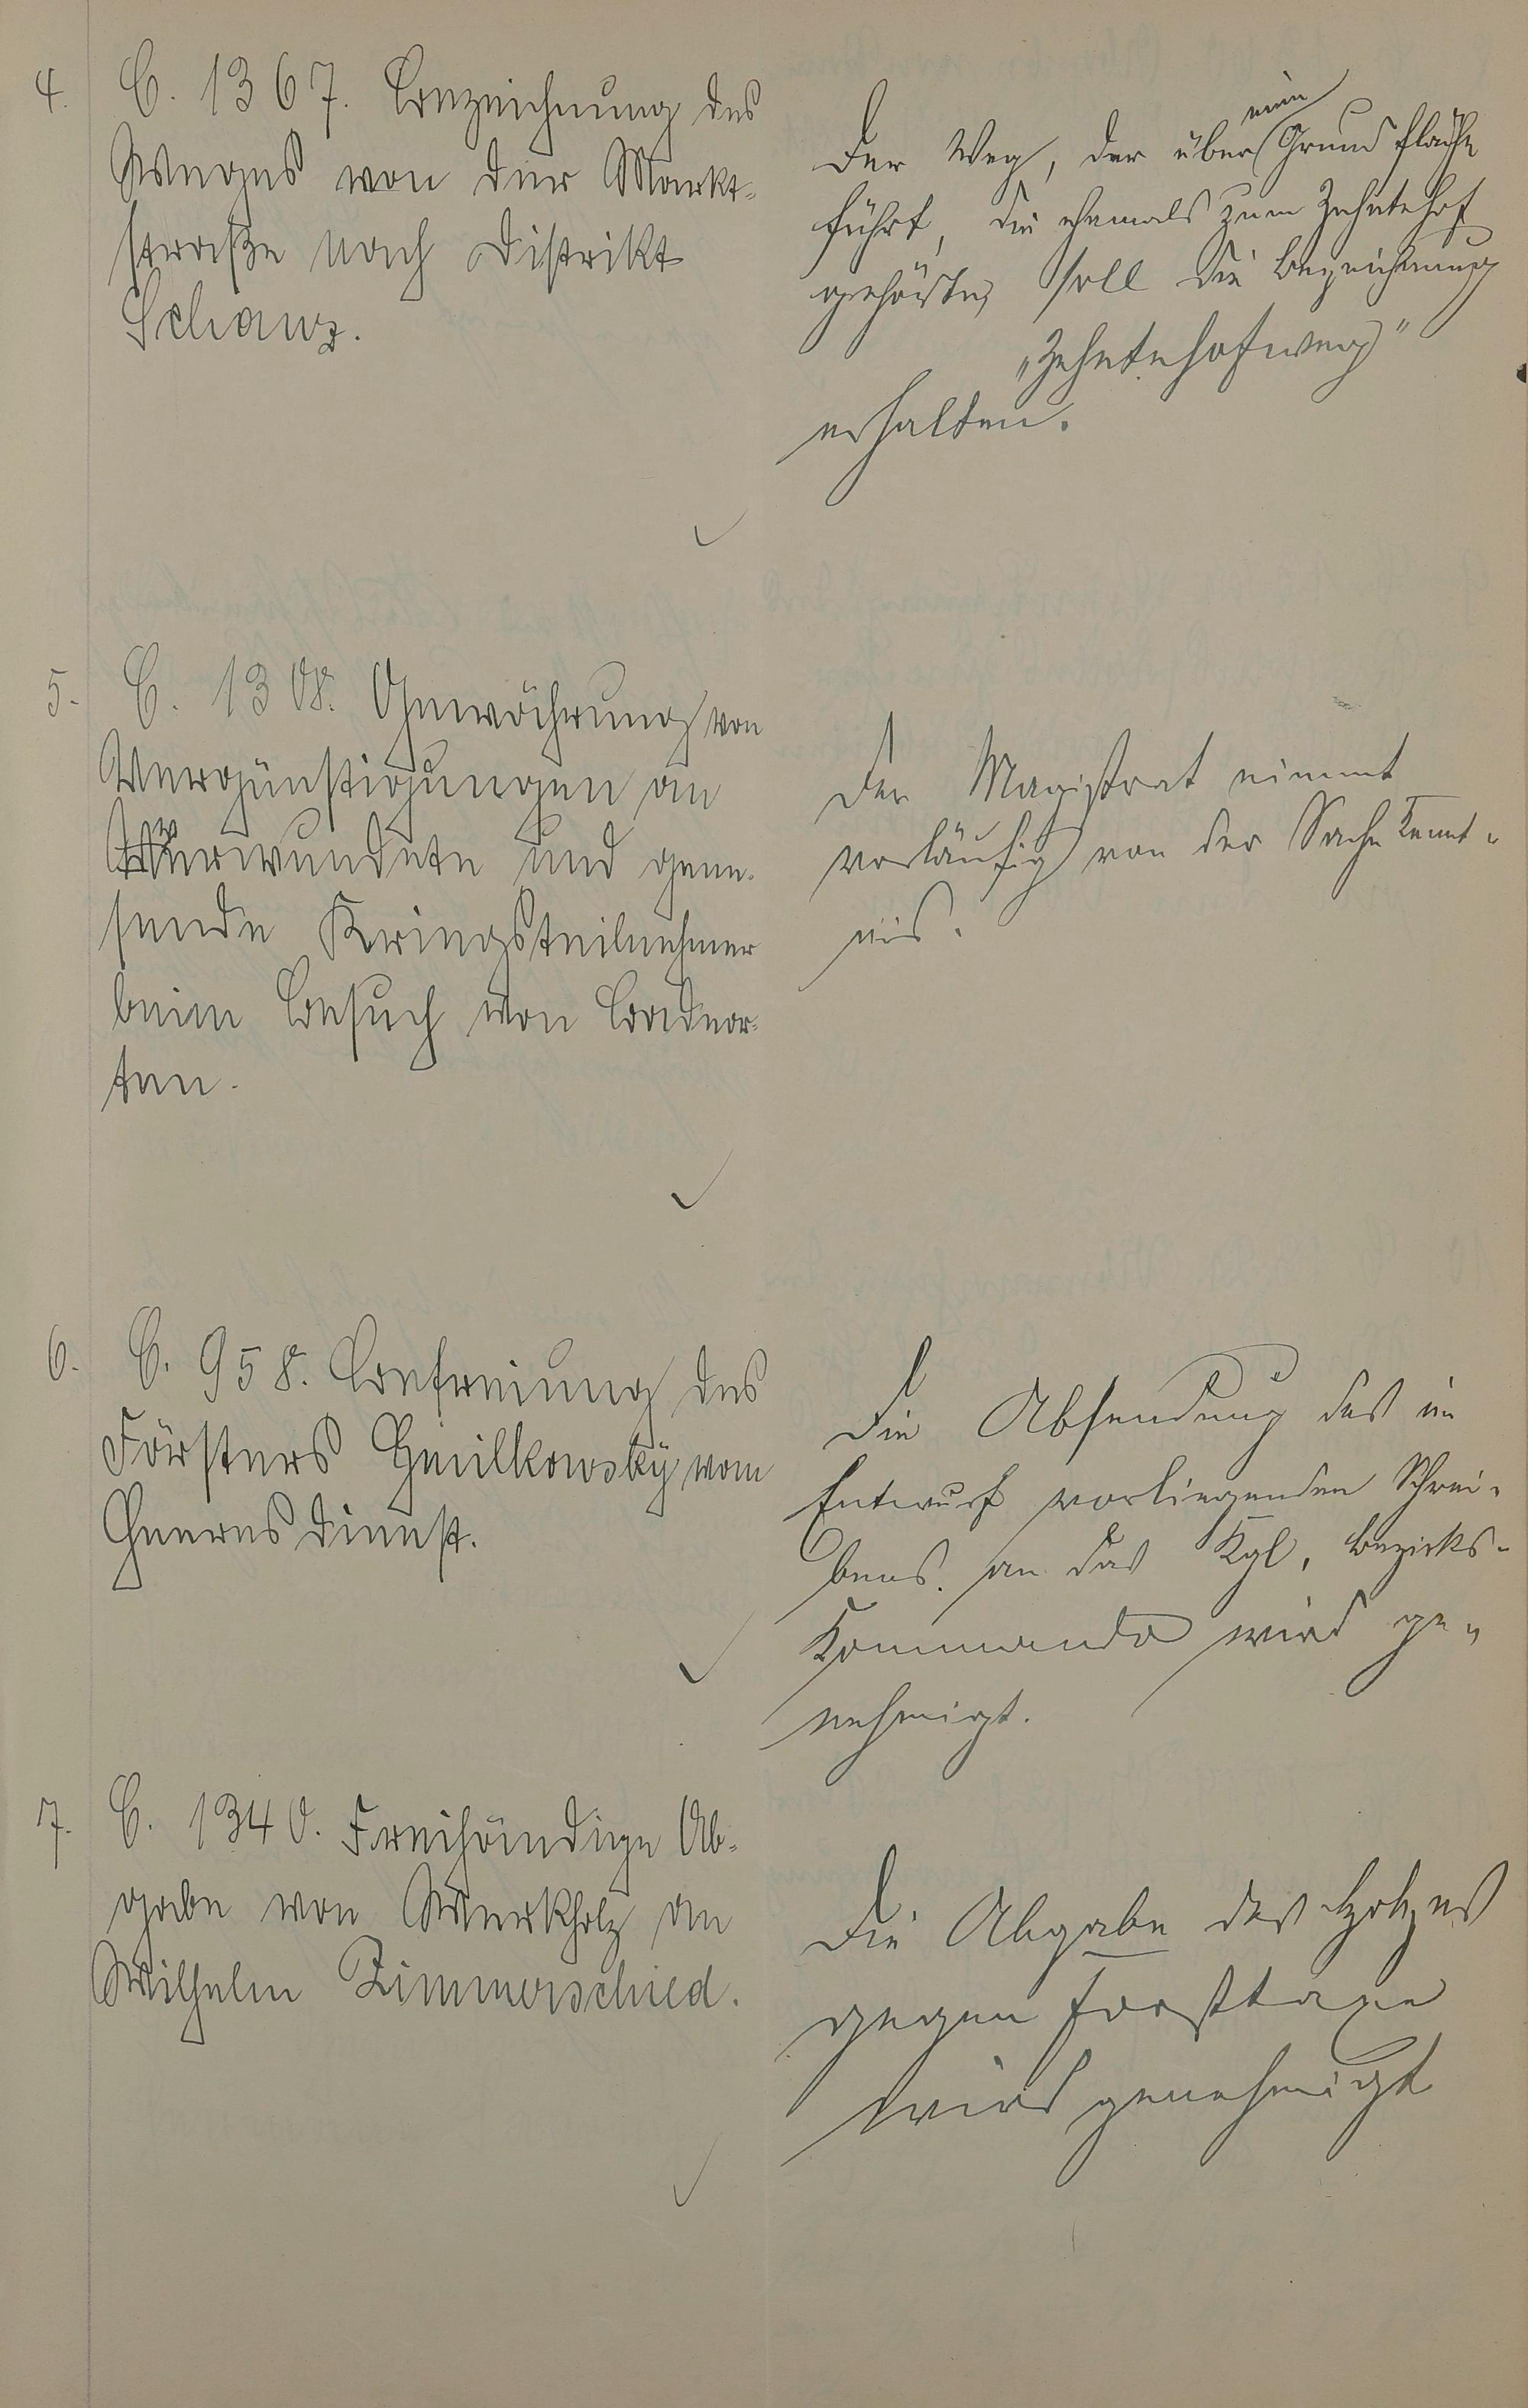 4. C. 1367. Bezeichnung des
Weges von der Markt-
straße nach Distrikt
Schanz.
Der Weg, der über eine Grundfläche
führt, die ehemals zum Zehntehof
gehörte, soll die Bezeichnung
„Zehntehofweg"
erhalten.
5. C. 1308. Gewährung von
Vergünstigungen an
Verwundete und gene-
sende Kriegsteilnehmer
beim Besuch von Badeor-
ten.
Der Magistrat nimmt
vorläufig von der Sache Kennt-
nis.
6. C. 958. Befreiung des
Försters Gmilkowsky vom
Heeresdienst.
Die Absendung des im
Entwurf vorliegenden Schrei-
bens an das Kgl. Bezirks-
Kommando wird ge-
nehmigt.
7. C. 1340. Freihändige Ab-
gabe von Werkholz an
Wilhelm Zimmerschied.
Die Abgabe des Holzes
gegen Forsttaxe
wird genehmigt